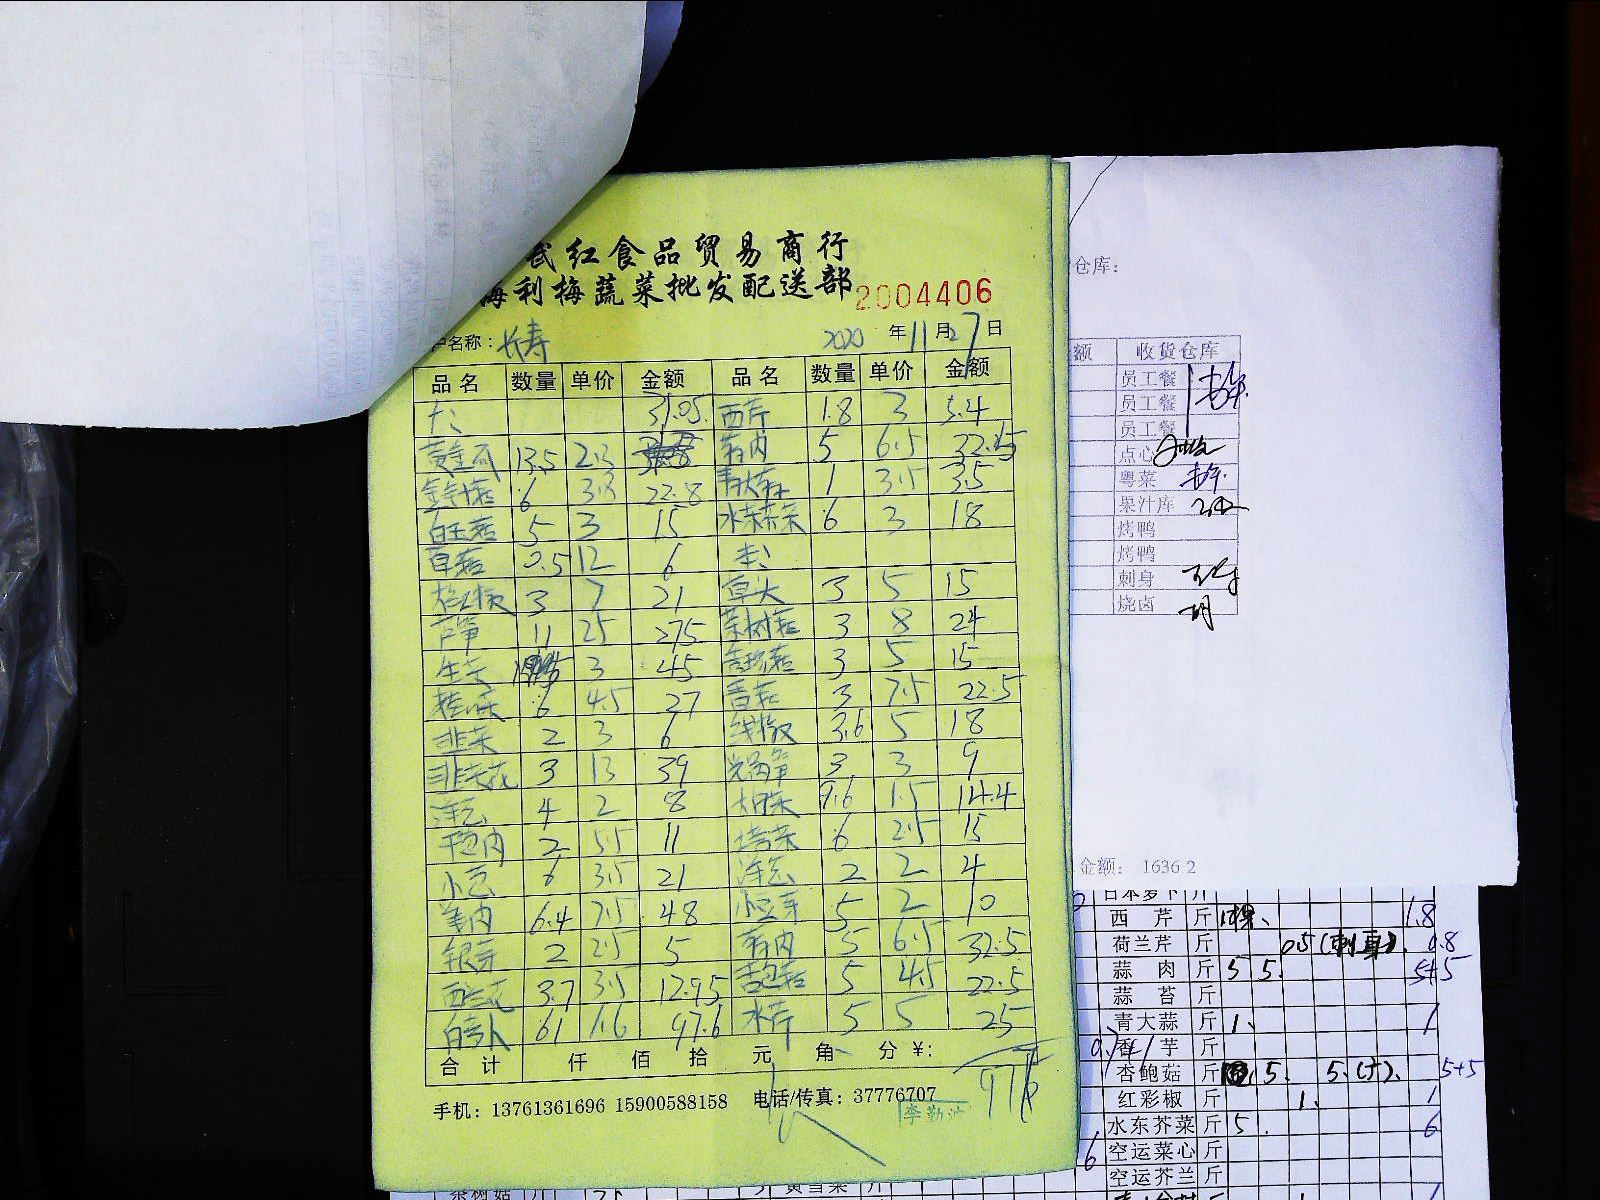 武红食品贸易商行
海利梅蔬菜批发配送部 2004406
户名称：长寿 2020 年 11 月 27 日
品名 数量 单价 金额 品名 数量 单价 金额
31.05 西芹 1.8 3 5.4
黄金瓜 13.5 2.3 蒜肉 5 6.5 32.5
6 3.8 22.8 青大蒜 1 3.5 3.5
白玉菇 5 3 15 水东芥菜 6 3 18
草菇 0.5 12 6
3 7 21 草头 3 5 15
芦笋 11 25 275 茶树菇 3 8 24
生菜 3 45 3 5 15
6 4.5 27 香菇 3 7.5 22.5
韭菜 2 3 6 线椒 3.6 5 18
韭菜花 3 13 39 3 3 9
洋葱 4 2 8 9.6 1.5 14.4
2 5.5 11 塔菜 6 2.5 15
小葱 6 3.5 21 洋葱 2 2 4
姜肉 6.4 7.5 48 小豆芽 5 2 10
银芽 2 2.5 5 蒜肉 5 6.5 32.5
西兰花 3.7 3.5 12.95 杏鲍菇 5 4.5 22.5
白萝卜 61 1.6 97.6 水芹 5 5 25
合计 仟 佰 拾 元 角 分 ¥:
手机：13761361696 15900588158 电话/传真：37776707
李勤
仓库：
额 收货仓库
员工餐
员工餐
员工餐
点心
粤菜
果汁库
烤鸭
烤鸭
刺身
烧卤
金额： 1636.2
日本萝卜 斤
西芹 斤 1.8
荷兰芹 斤 0.5(刺身) 0.8
蒜肉 斤 5 5 5+5
蒜苔 斤
青大蒜 斤 1 1
香芋 斤
杏鲍菇 斤 5 5 5+5
红彩椒 斤 1 1
水东芥菜 斤 5 6
空运菜心 斤
空运芥兰 斤
茶树菇 斤
黄雪菜 斤